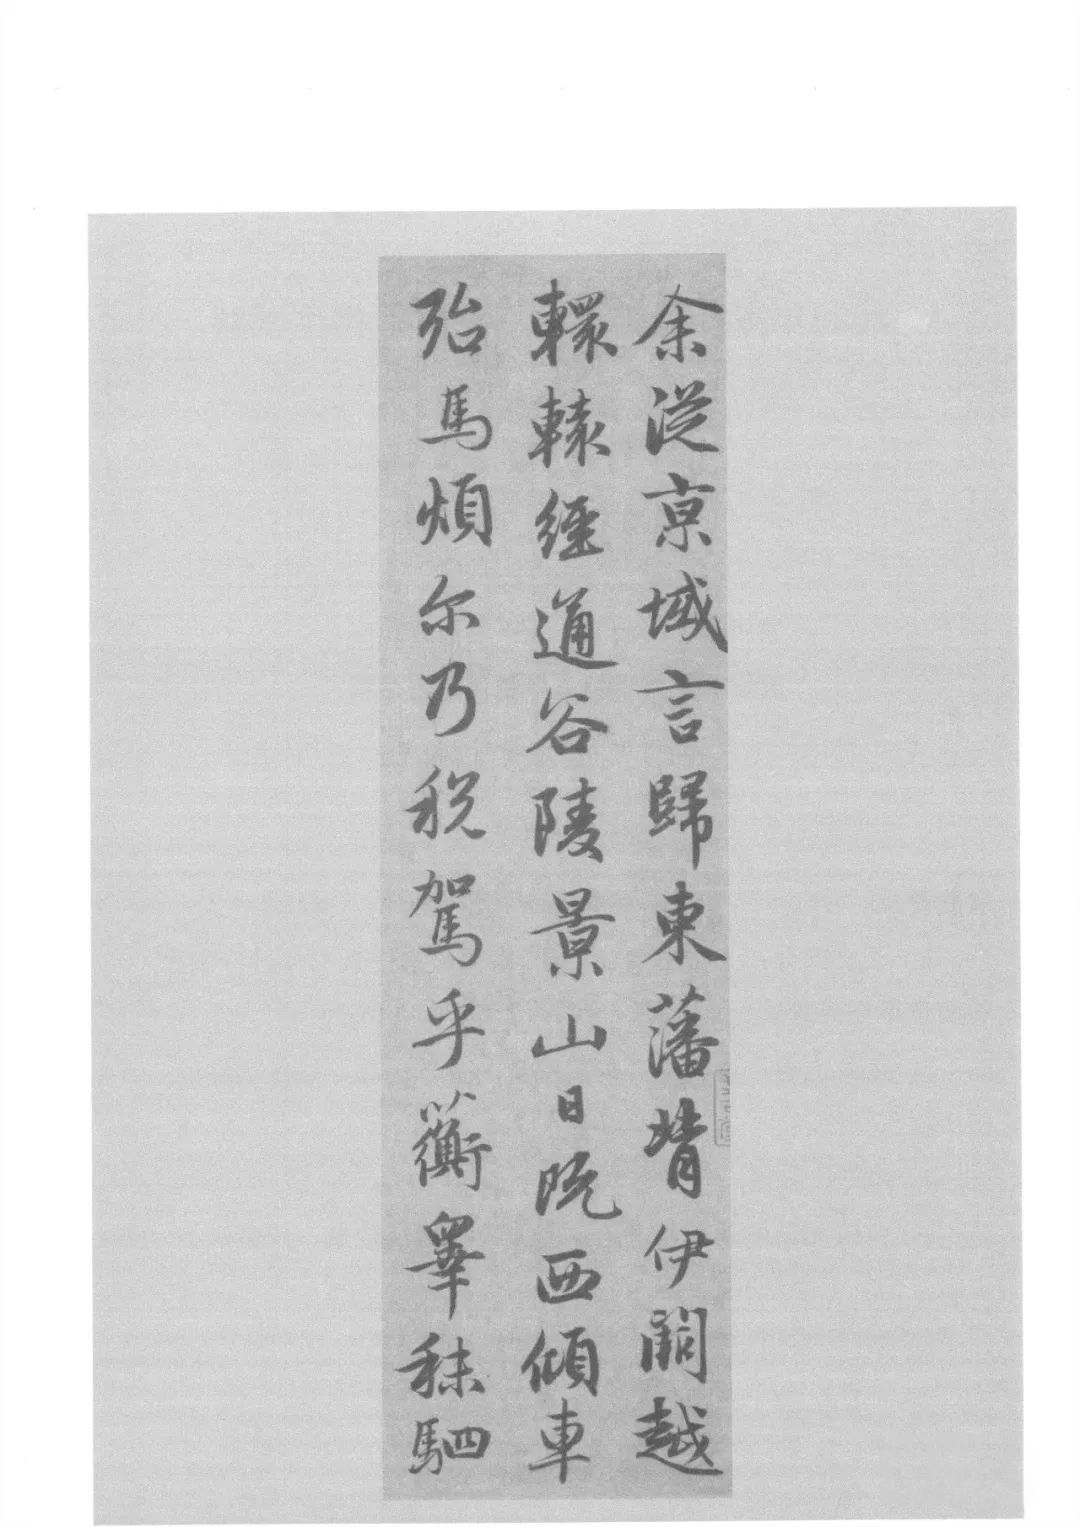 余從京域言歸東藩背伊闕越
轘轅經通谷陵景山日既西傾車
殆馬煩尔乃税駕乎蘅睾秣駟